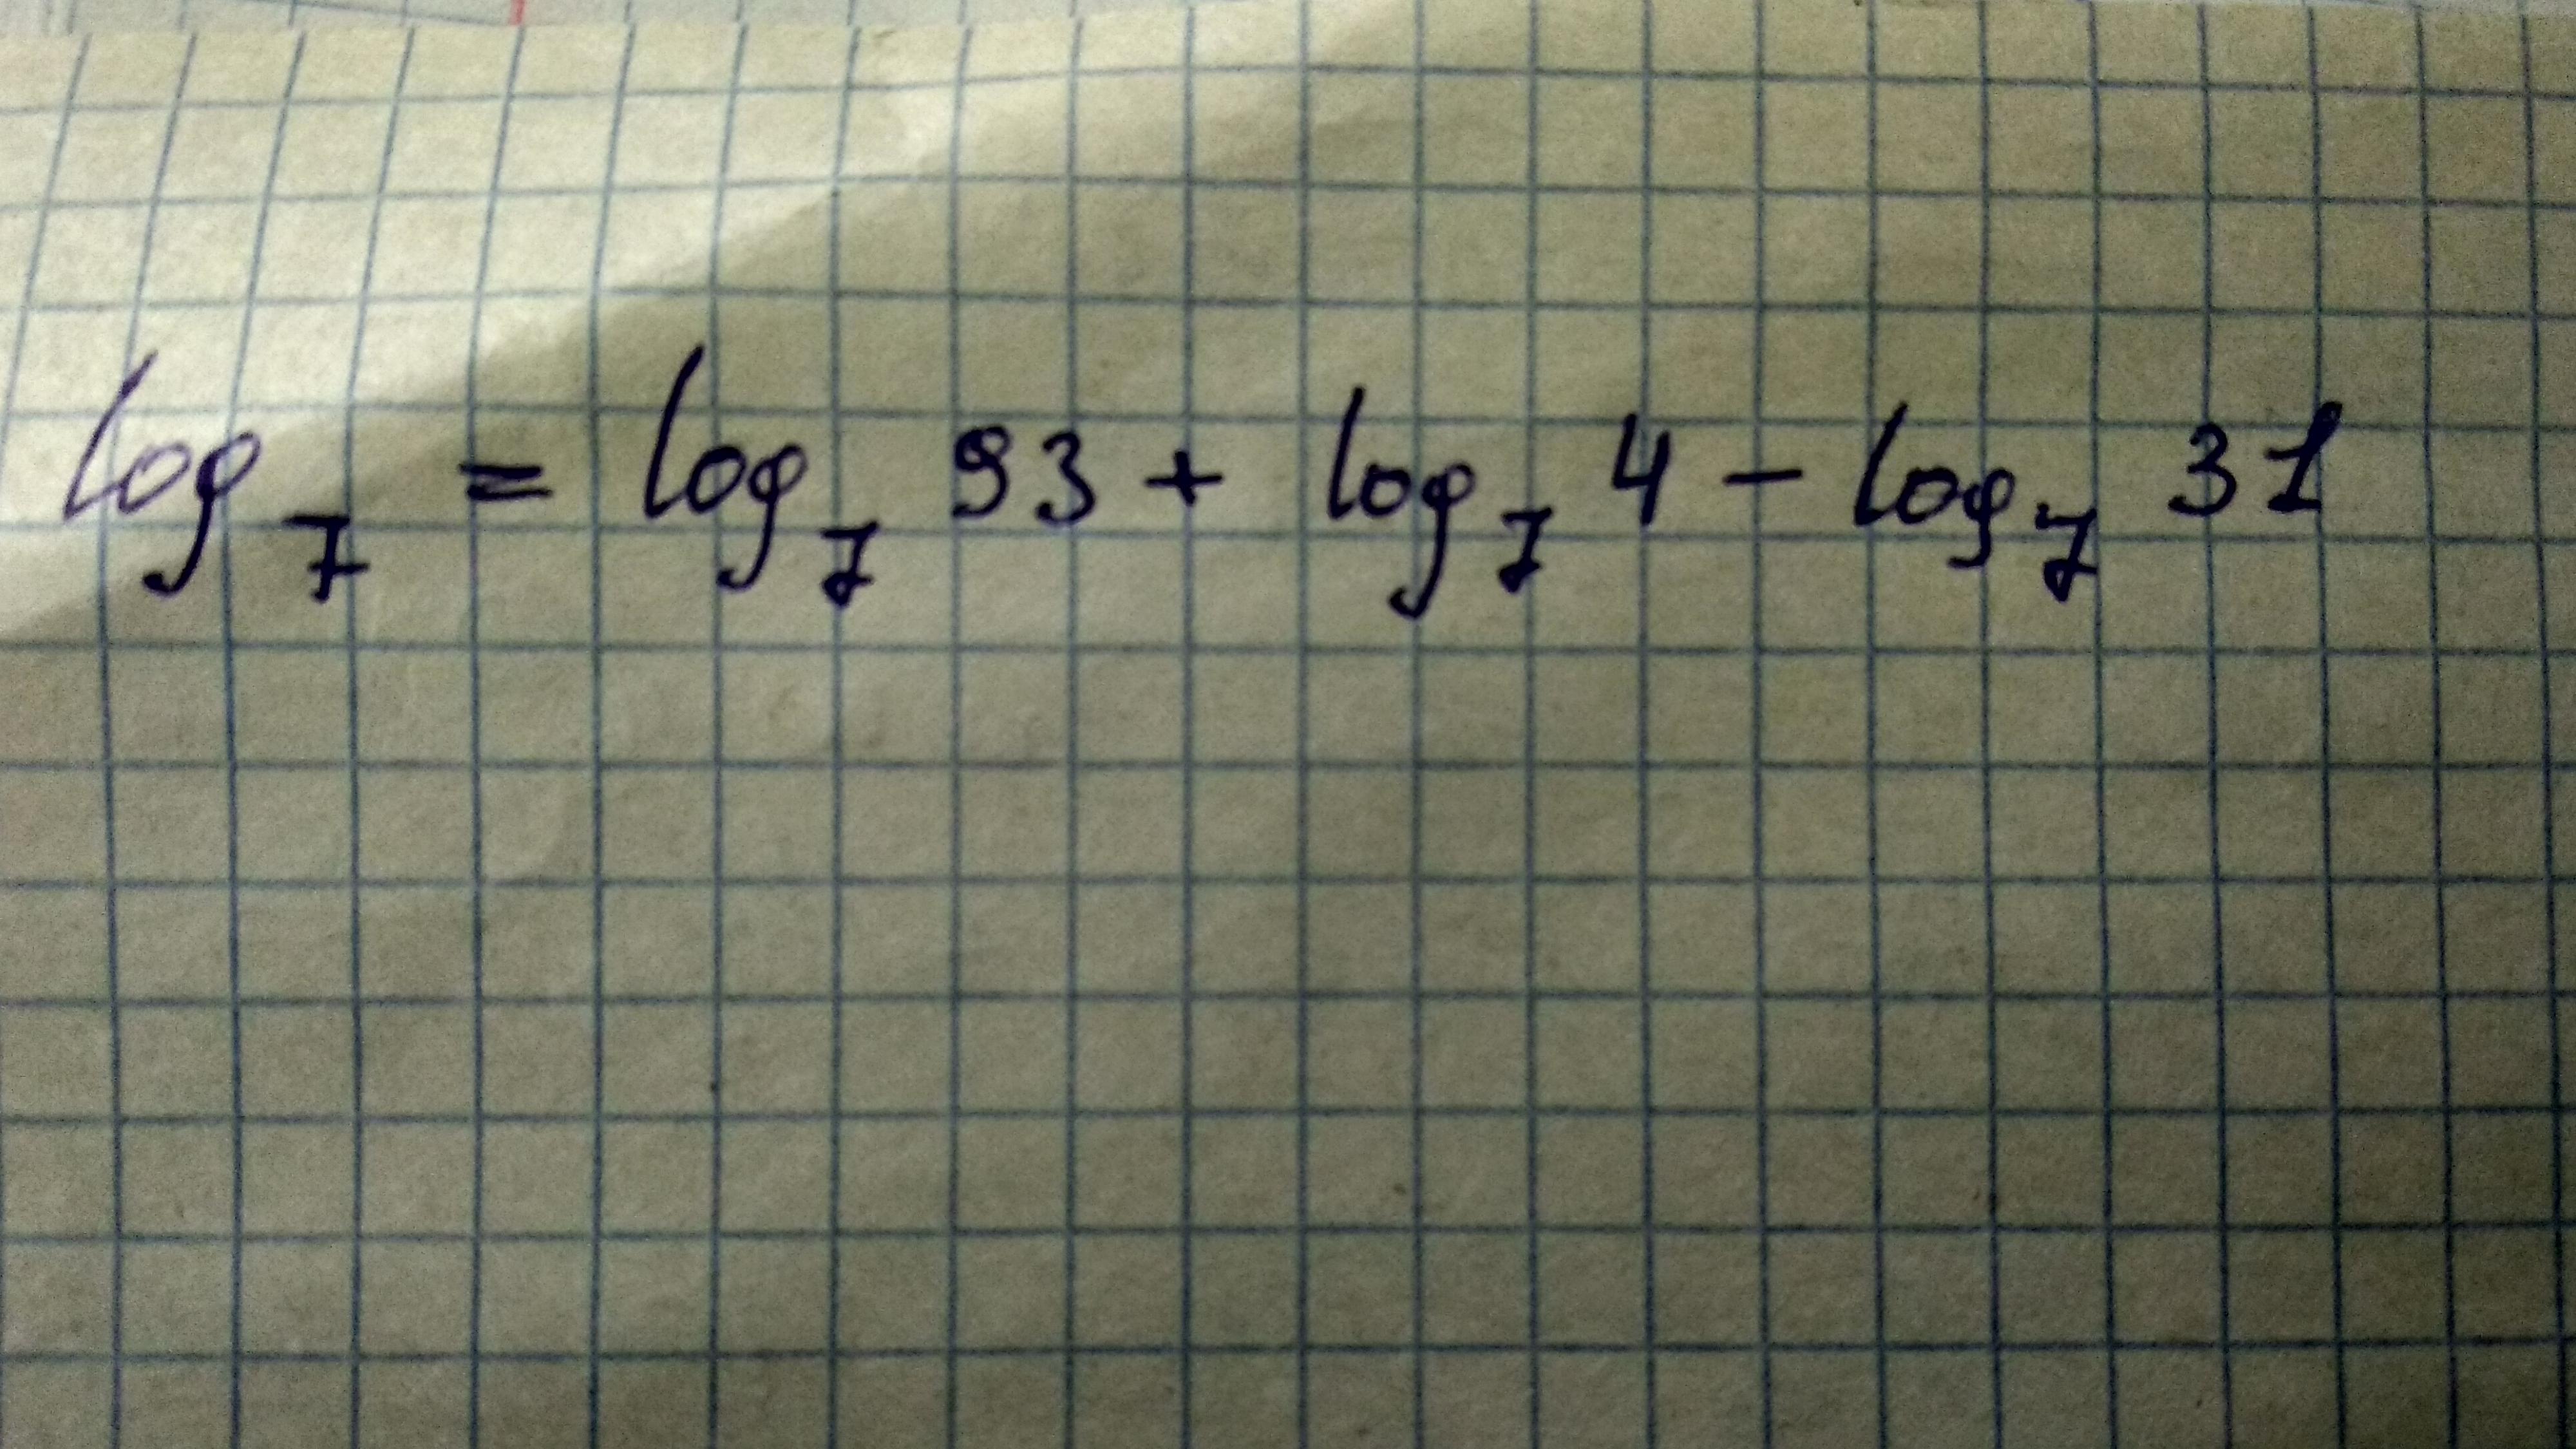 log₇ = log₇ 93 + log₇ 4 - log₇ 31